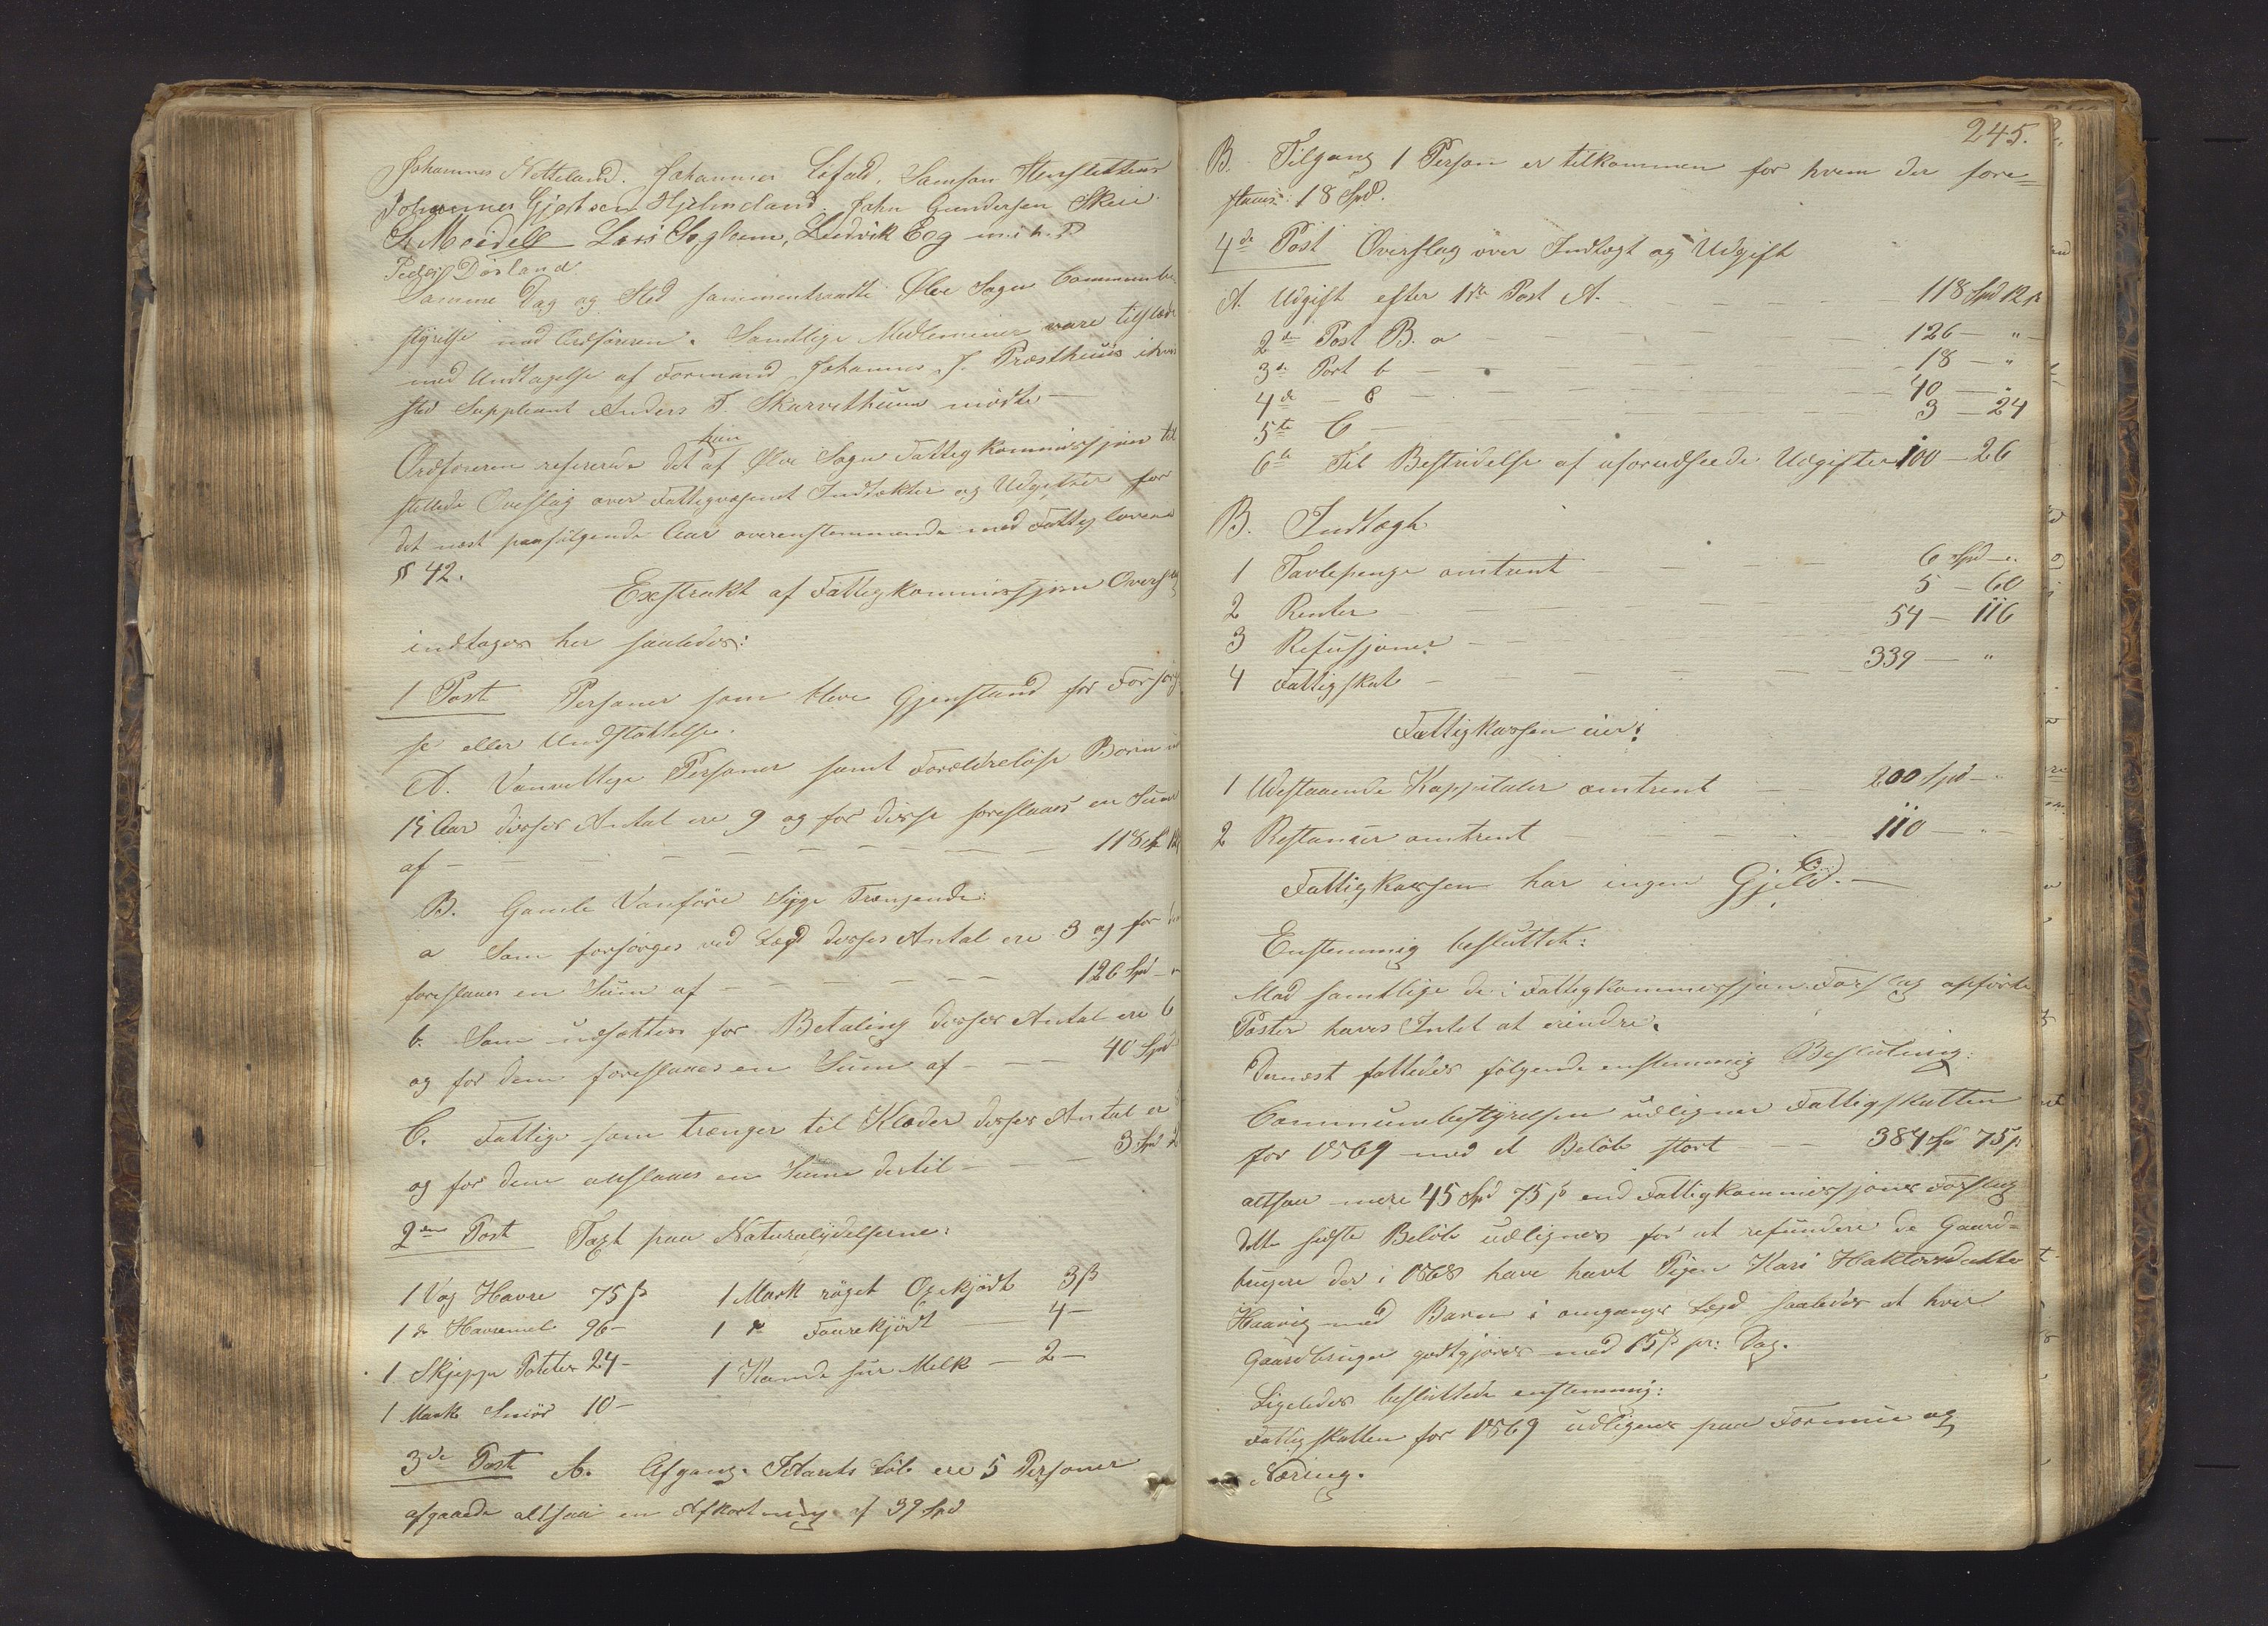 Johannes Netteland. Johannes Løfald, Samson Henslettens
Johannes Gjertsen Hjelmeland. John Gundersen Skeie
S Moidell Lars Soglem, Ludvik Eeg m.i.h.P
Peder Døsland.
Samme Dag og Sted sammentraadte Ølve Sogns Communebe
styrelse med Ordføreren. Samtlige Medlemmer vare tilstæde
med Undtagelse af Formand Johannes J. Præsthuus i hvis
sted Suppleant Anders T. Skarvethuun mødte —
Ordføreren refererede det af Ølve Sogns Fattigkommissjon til
stillede Overslag over Fattigvæsenets Indtækter og Udgifter for
det næst paafølgende Aar overenstemmende med Fattiglovens
§ 42.
Exstrakt af Fattigkommissjons Overslag
indtages her saaledes:
1 Post Personer som bleve Gjenstand for Forsørgel
se eller Understøttelse.
A. Vanvittige Personer samt Forældreløse Børn under
15 Aar disses Antal ere 9 og for disse foreslaaes en Sum
af — — — — — — — 118 Sp 12
B. Gamle Vanføre Syge Trængende:
a Som forsørges ved Lægd disses Antal ere 3 og for
foreslaaes en Sum af — — — — — 126 Spd — "
b. Som udsættes for Betaling disses Antal ere 6
og for dem foreslaaes en Sum af — — 40 Spd
C. Fattige som trænger til Klæder disses Antal er
og for dem anslaaes en Sum dertil — — — 3 Spd
2den Post Taxt paa Naturalydelserne:
1 Vog Havre 75 ß 1 Mark røget Oxekjødt 3 ß
1 do Havremel 96 — 1 do Faarekjødt — 4 —
1 Skjeppe Poteter 24 — 1 Kande sur Melk — 2 —
1 Mark Smør 10 —
3de Post A. Afgang. I Aarets Løb ere 5 Personer
afgaaede altsaa en Afkortning af 39 Spd
245.
B. Tilgang 1 Person er tilkommen for hvem der fore=
slaaes 18 Spd.
4de Post Overslag over Indtægt og Udgift
A. Udgift efter 1ste Post A. — — — 118 Spd 12 ß
2den Post B. a — — — 126 — " —
3de Post b — — — 18 — "
4de — C — — — 40 — "
5te C — — — 3 — 24
6te Til Bestridelse af uforudseede Udgifter 100 — 26
B. Indtægt
1 Tavlepenge omtrent — — — 6 Spd — "
2 Renter — — — 5 — 60
3 Refusjoner — — — 54 — 116
4 Fattigskat — — — 339 — "
Fattigkassen eier:
1 Udestaaende Kappitaler omtrent — — 200 Spd — "
2 Restancer omtrent — — 110 — " —
Fattigkassen har ingen Gjeld. —
Enstemmig besluttet:
Mod samtlige de i Fattigkommissjonens Forslag opførte
Poster haves Intet at erindre.
Dernæst fattedes følgende enstemmig Beslutning:
Communebestyrelsen udligner Fattigskatten
for 1869 med et Beløb stort — — 384 Sp 75 ß
altsaa mere 45 Spd 75 ß end Fattigkommissjonens Forslag
dette sidste Beløb udlignes for at refundere de Gaard=
brugere der i 1868 have havt Pigen Kari Haktorsdatter
Haavig med Barn i omgangs Lægd saaledes at hver
Gaardbruger godtgjøres med 15 ß pr: Dag.
Ligeledes besluttede enstemmig:
Fattigskatten for 1869 udlignes paa Formue og
Næring.